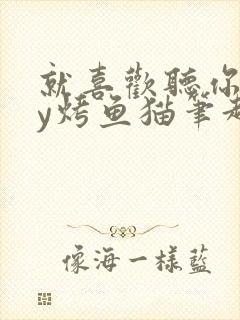 就喜歡聽你
y烤鱼猫筆趣
像海一樣藍